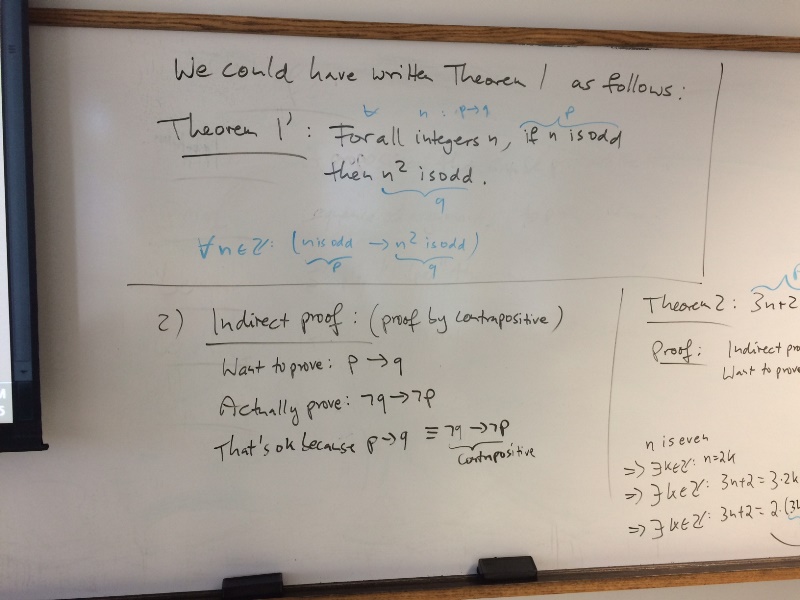 We could have written Theorem 1 as follows:
∀ n : p→q p
Theorem 1': For all integers n, if n is odd
then n² is odd.
q
∀n∈ℤ: (n is odd → n² is odd)
p q
2) Indirect proof: (proof by contrapositive)
Want to prove: p → q
Actually prove: ¬q → ¬p
That's ok because p → q ≡ ¬q → ¬p
contrapositive
Theorem 2: 3n+2
Proof: Indirect
Want to prove
n is even
⇒ ∃k∈ℤ: n=2k
⇒ ∃k∈ℤ: 3n+2 = 3·2k
⇒ ∃k∈ℤ: 3n+2 = 2·(3